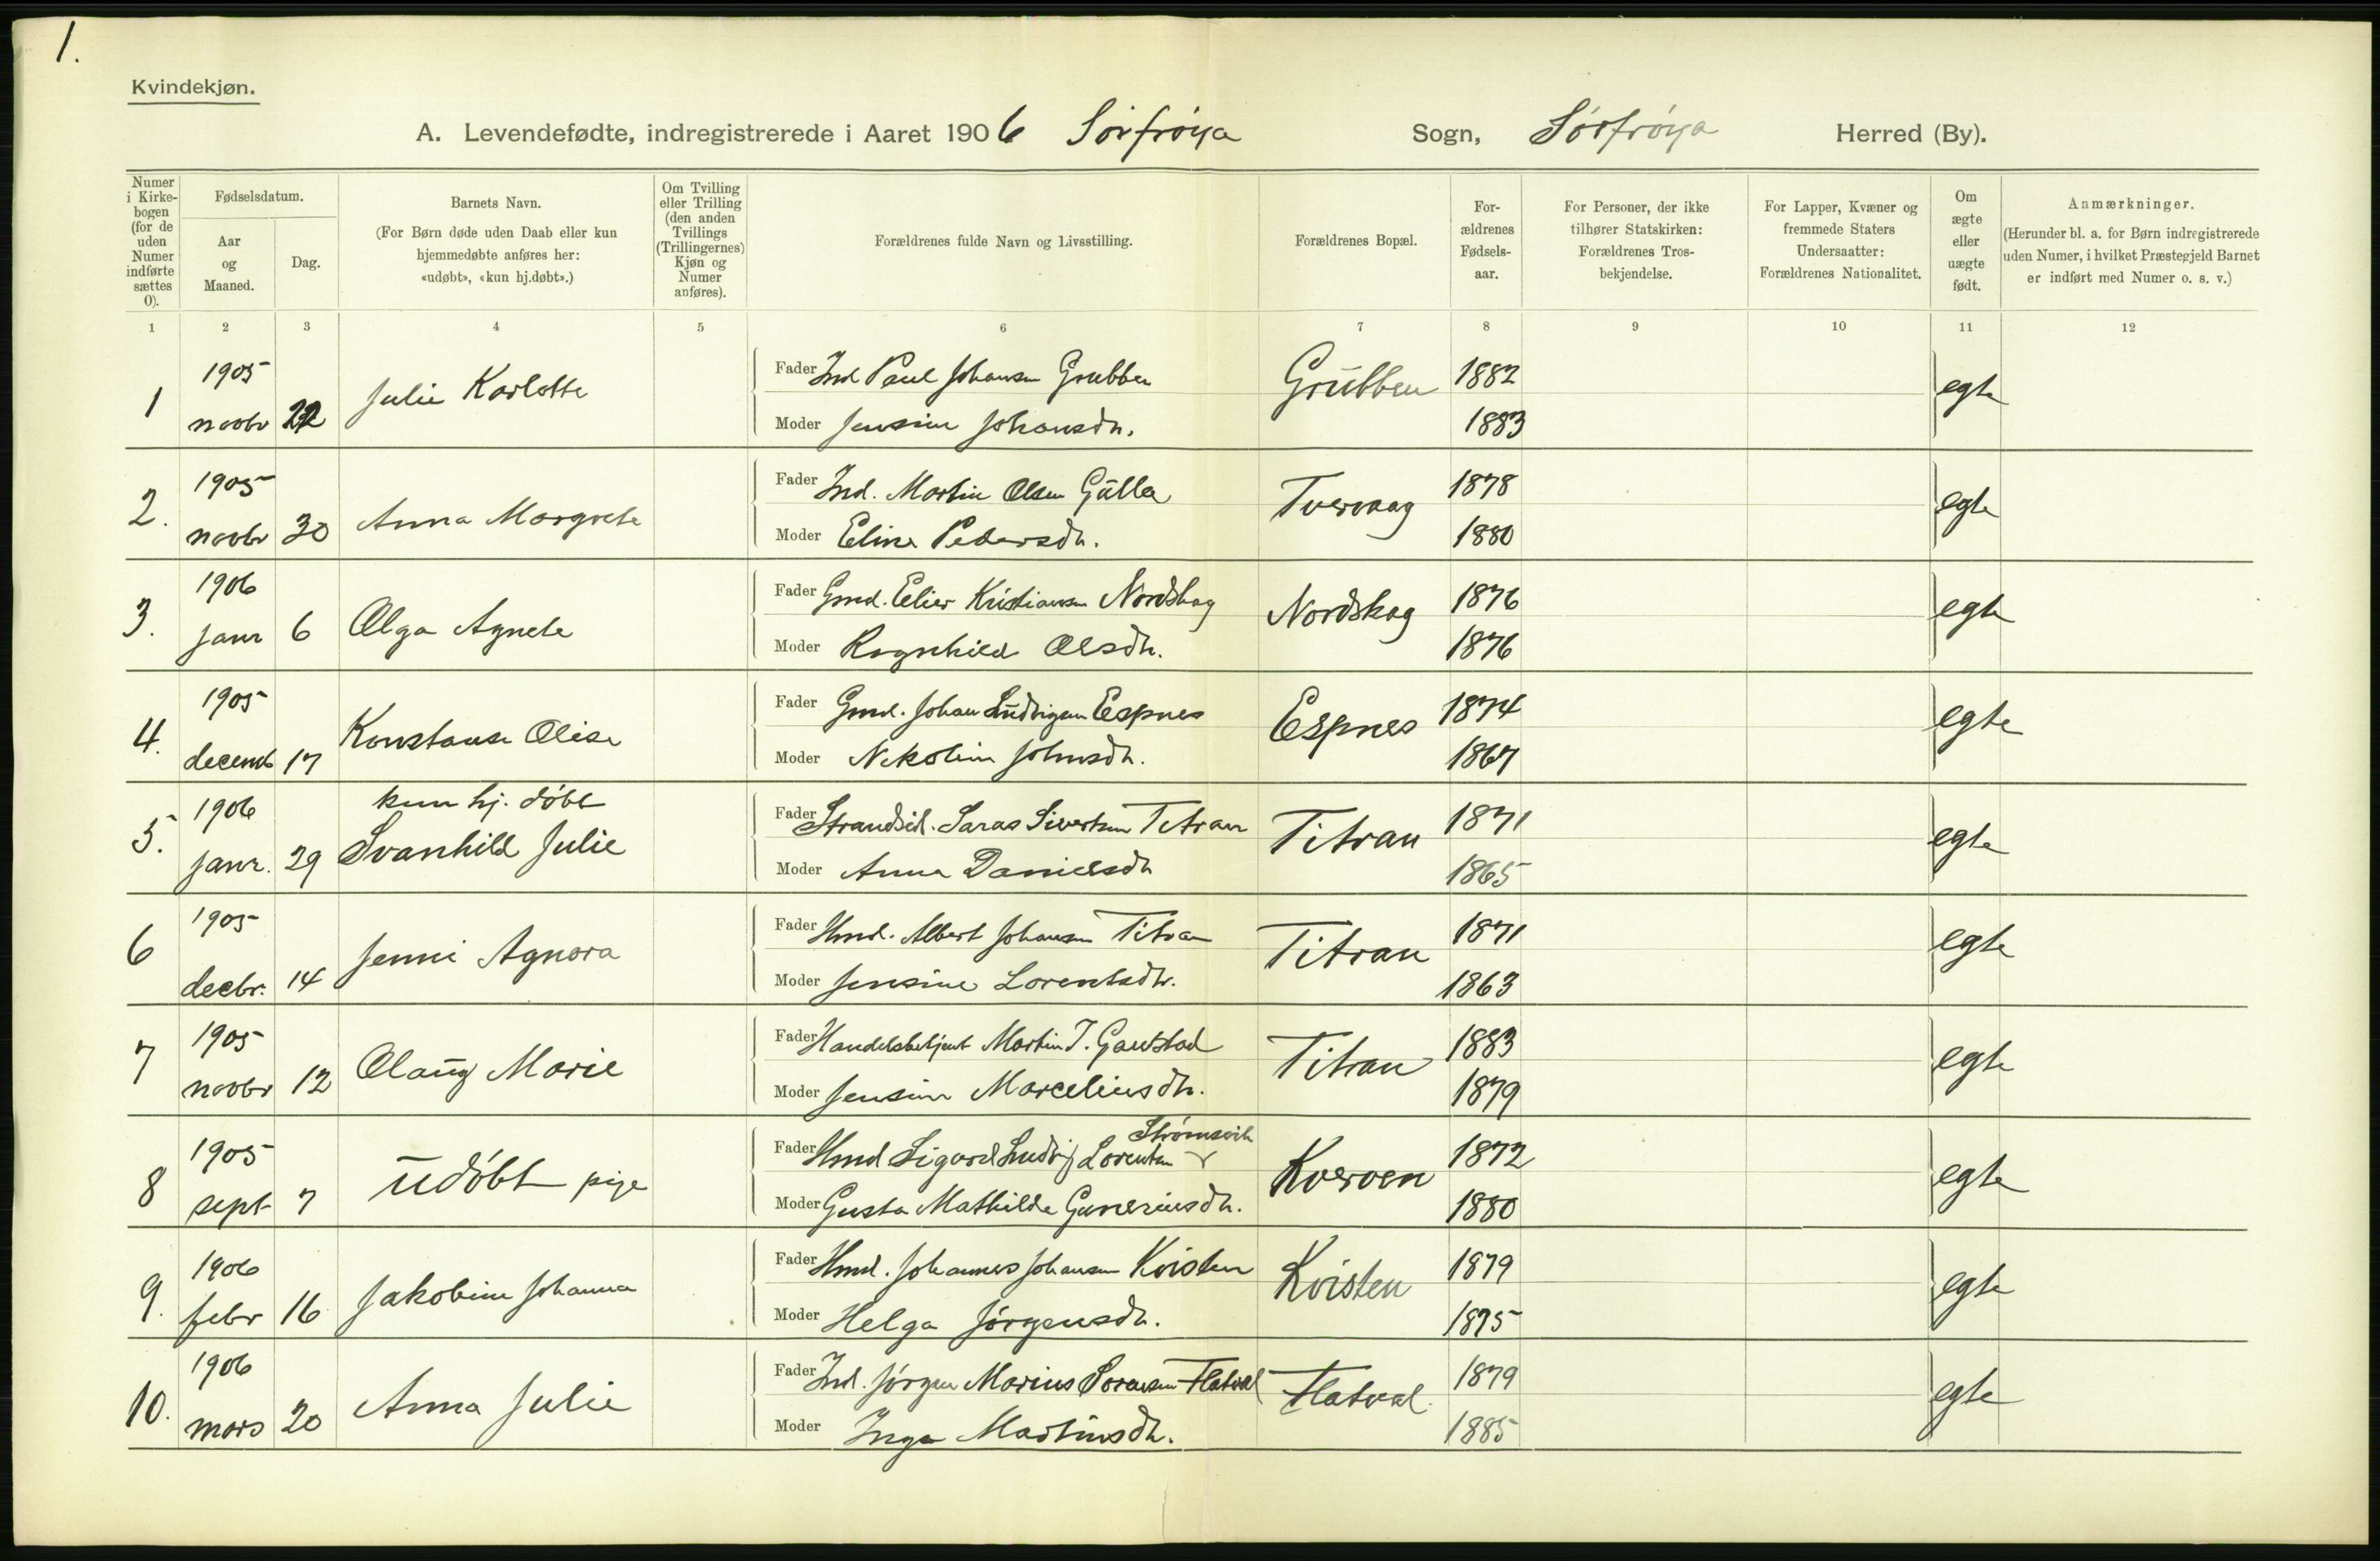 1.
Kvindekjøn.
A. Levendefødte, indregistrerede i Aaret 1906 Sörfröya Sogn, Sörfröya Herred (By).
Numer i Kirkebogen (for de uden Numer indførte sættes 0).
Fødselsdatum.
Aar og Maaned.
Dag.
Barnets Navn.
(For Børn døde uden Daab eller kun hjemmedøbte anføres her: «udøbt», «kun hj.døbt».)
Om Tvilling eller Trilling (den anden Tvillings (Trillingernes) Kjøn og Numer anføres).
Forældrenes fulde Navn og Livsstilling.
Forældrenes Bopæl.
Forældrenes Fødselsaar.
For Personer, der ikke tilhører Statskirken: Forældrenes Trosbekjendelse.
For Lapper, Kvæner og fremmede Staters Undersaatter: Forældrenes Nationalitet.
Om ægte eller uægte født.
Anmærkninger.
(Herunder bl. a. for Børn indregistrerede uden Numer, i hvilket Præstegjeld Barnet er indført med Numer o. s. v.)
1 2 3 4 5 6 7 8 9 10 11 12
1 1905 novbr 22 Julie Karlotte Fader Ind Paul Johansen Grubben Grubben 1882 egte
Moder Jensine Johansdr. 1883
2. 1905 novbr 30 Anna Margrete Fader Ind. Martin Olsen Gulla Tvervaag 1878 egte
Moder Eline Pedersdr. 1880
3. 1906 janr 6 Olga Agnete Fader Gmd. Elier Kristiansen Nordskag Nordskag 1876 egte
Moder Ragnhild Olsdr. 1876
4. 1905 decemb 17 Konstanse Olise Fader Gmd. Johan Ludvigsen Espnes Espnes 1874 egte
Moder Nikoline Johnsdr. 1867
5. 1906 janr. 29 kun hj. döbt
Svanhild Julie Fader Strandsid. Saras Sivertsen Titran Titran 1871 egte
Moder Anna Danielsdr 1865
6 1905 decbr. 14 Jenni Agnora Fader Hmd. Albert Johansen Titran Titran 1871 egte
Moder Jensine Lorentsdr. 1863
7 1905 novbr 12 Olaug Marie Fader Handelsbetjent Martin J. Gaustad Titran 1883 egte
Moder Jensine Marceliusdr. 1879
8 1905 sept 7 udöbt pige Fader Hmd Sigvard Ludvig Lorentsen Strömsvik Kverven 1872 egte
Moder Gusta Mathilde Guneriusdr. 1880
9. 1906 febr 16 Jakobine Johanna Fader Hmd. Johannes Johansen Kvisten Kvisten 1879 egte
Moder Helga Jörgensdr. 1875
10. 1906 mars 20 Anna Julie Fader Ind. Jörgen Marius Flatval Flatval 1879 egte
Moder Inga Martinsdr. 1885